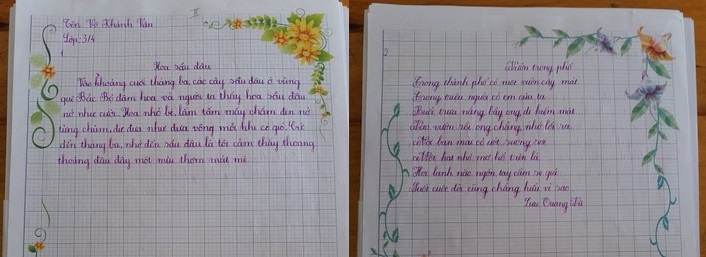 II
Tên: Võ Khánh Vân
Lớp: 3/4
1
Hoa sầu đâu
Vào khoảng cuối tháng ba, các cây sầu đâu ở vùng
quê Bắc Bộ đâm hoa và người ta thấy hoa sầu đâu
nở như cười. Hoa nhỏ bé, lấm tấm mấy chấm đen nở
từng chùm, đu đưa như đưa võng mỗi khi có gió. Cứ
đến tháng ba, nhớ đến sầu đâu là tôi cảm thấy thoang
thoảng đâu đây một mùi thơm mát mẻ
2
Vườn trong phố
Trong thành phố có một vườn cây mát
Trong triệu người có em của ta
Buổi trưa nắng bầy ong đi kiếm mật
Vào vườn rồi ong chẳng nhớ lối ra
Vòi ban mai có ướt sương rơi
Một hai nhỏ mơ hồ trên lá
Hơi lạnh nào ngón tay cầm se giá
Suốt cuộc đời cũng chẳng hiểu vì sao
Lưu Quang Vũ